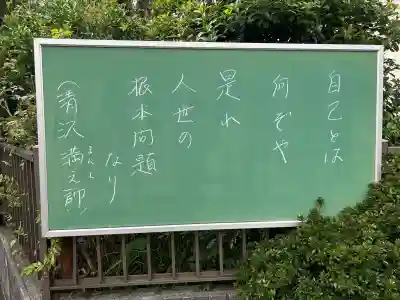 自己とは
何ぞや
是れ
人世の
根本問題
なり
(清沢満之師)
まんし